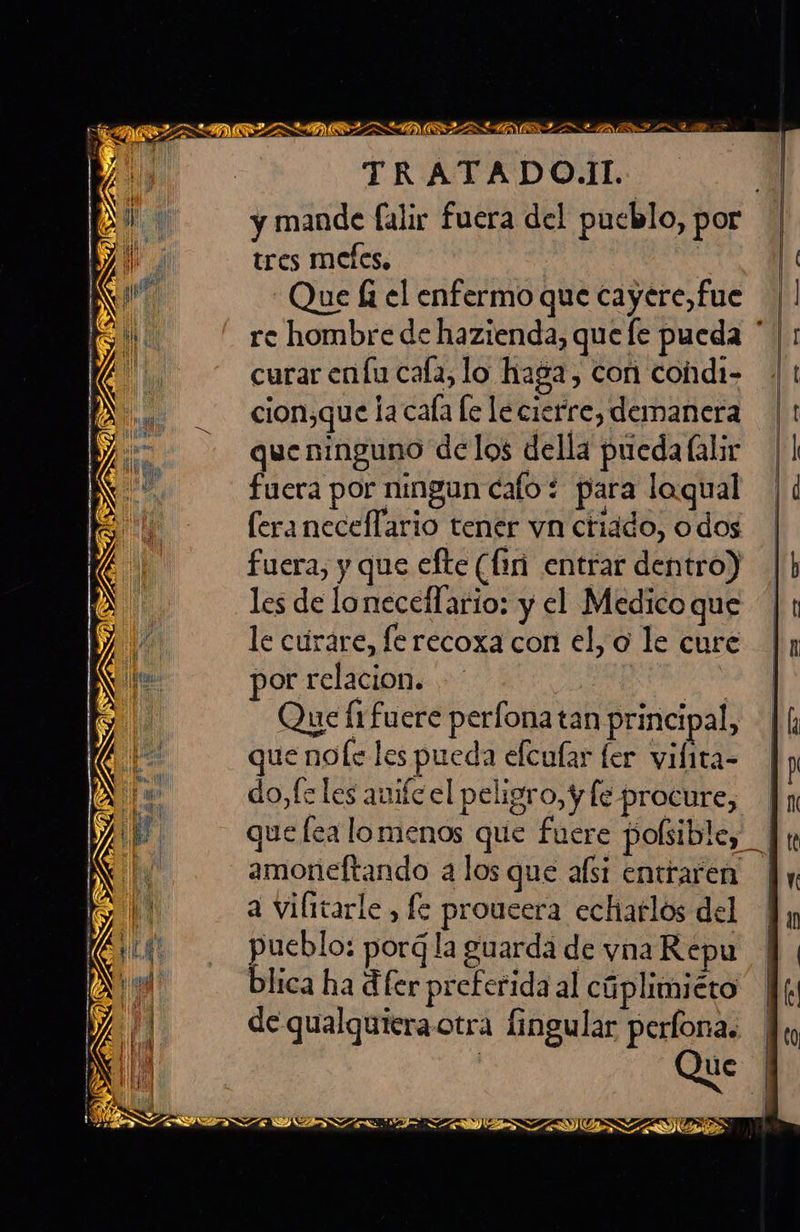 TRATADO.II.
y mande ſalir fuera del pueblo, por
tres meſes.
Que ſi el enfermo que cayere, fue
re hombre de hazienda, que ſe pueda
curar en ſu caſa, lo haga, con condi-
cion, que la caſa ſe le cierre, de manera
que ninguno de los della pueda ſalir
fuera por ningun caſo: para lo qual
ſera neceſſario tener vn criado, o dos
fuera, y que eſte (ſin entrar dentro)
les de lo neceſſario: y el Medico que
le curare, ſe recoxa con el, o le cure
por relacion.
Que ſi fuere perſona tan principal,
que no ſe les pueda eſcuſar ſer viſita-
do, ſe les auiſe el peligro, y ſe procure,
que ſea lo menos que fuere poſsible,
amoneſtando a los que aſsi entraren
a viſitarle, ſe proueera echarlos del
pueblo: porq̃ la guarda de vna Repu
blica ha d̃ ſer preferida al cũplimiẽto
de qualquiera otra ſingular perſona.
Que